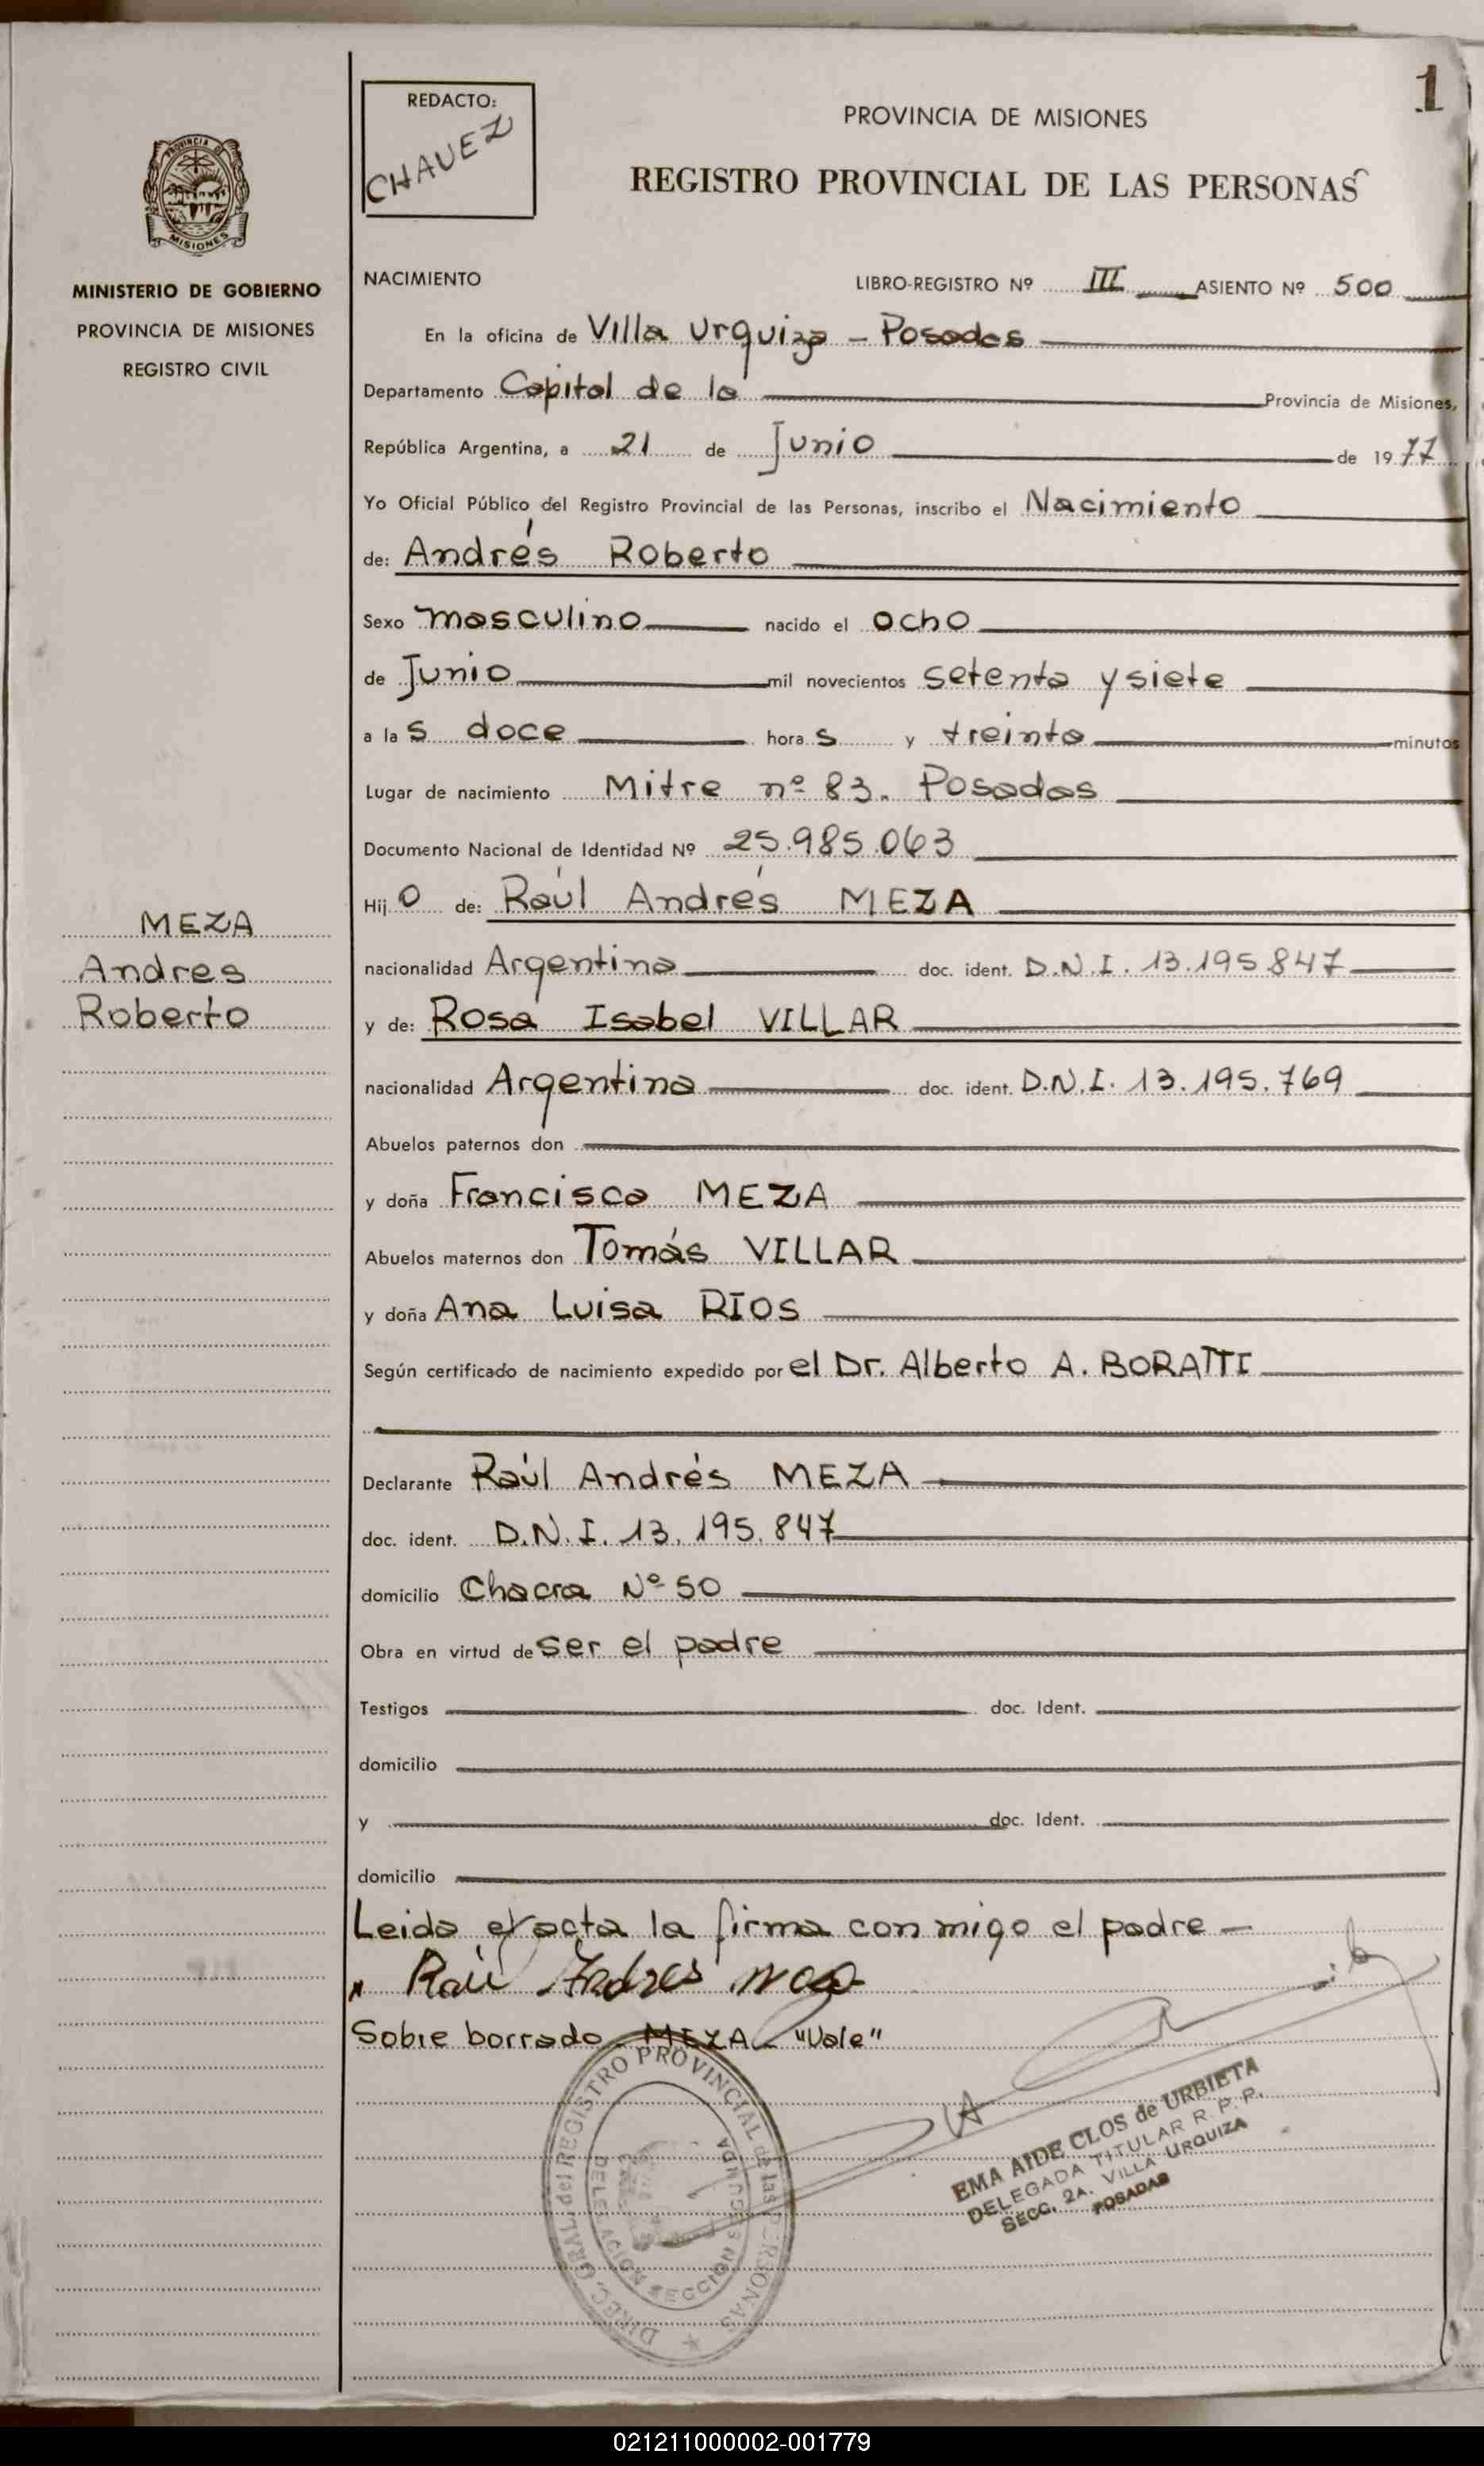 1
REDACTO:
CHAVEZ
PROVINCIA DE MISIONES
REGISTRO PROVINCIAL DE LAS PERSONAS
PROVINCIA DE
MISIONES
MINISTERIO DE GOBIERNO
PROVINCIA DE MISIONES
REGISTRO CIVIL
NACIMIENTO LIBRO-REGISTRO Nº III ASIENTO Nº 500
En la oficina de Villa Urquiza - Posadas
Departamento Capital de la Provincia de Misiones,
República Argentina, a 21 de Junio de 1977
Yo Oficial Público del Registro Provincial de las Personas, inscribo el Nacimiento
de: Andrés Roberto
Sexo masculino nacido el ocho
de Junio mil novecientos setenta y siete
a las doce horas y treinta minutos
Lugar de nacimiento Mitre nº 83. Posadas
Documento Nacional de Identidad Nº 25.985.063
Hijo de: Raúl Andrés MEZA
nacionalidad Argentina doc. ident. D.N.I. 13.195.847
y de: Rosa Isabel VILLAR
nacionalidad Argentina doc. ident. D.N.I. 13.195.769
Abuelos paternos don
y doña Francisca MEZA
Abuelos maternos don Tomás VILLAR
y doña Ana Luisa RIOS
Según certificado de nacimiento expedido por el Dr. Alberto A. BORATTI
Declarante Raúl Andrés MEZA
doc. ident. D.N.I. 13.195.847
domicilio Chacra Nº 50
Obra en virtud de ser el padre
Testigos doc. Ident.
domicilio
y doc. Ident.
domicilio
Leida el acta la firma conmigo el padre -
Raul Andres
Sobre borrado MEZA "Vale"
MEZA
Andres
Roberto
DIREC. GRAL. del REGISTRO PROVINCIAL de las PERSONAS
DELEGACION SECCION SEGUNDA
EMA AIDE CLOS de URBIETA
DELEGADA TITULAR R. P. P.
SECC. 2A. VILLA URQUIZA
POSADAS
021211000002-001779